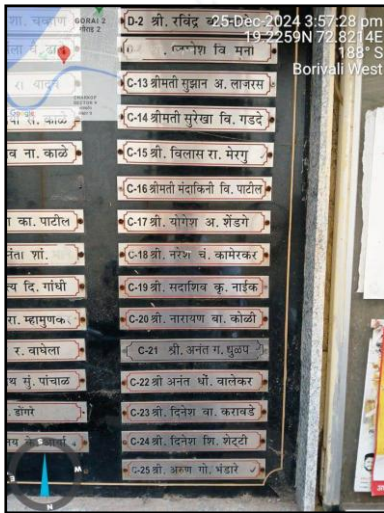 GORAI 2
गोराई 2
CHARKOP
SECTOR 4
25-Dec-2024 3:57:28 pm
19.2259N 72.8214E
188° S
Borivali West
ना. काळे
का. पाटील
शां.
दि. गांधी
रा. म्हामुणक
र. वाघेला
सुं. पांचाळ
डोंगरे
D-2 श्री. रविंद्र
वि
C-13 श्रीमती सुझान अ. लाजरस
C-14 श्रीमती सुरेखा वि. गडदे
C-15 श्री. विलास रा. मेरगु
C-16 श्रीमती मंदाकिनी वि. पाटील
C-17 श्री. योगेश अ. शेंडगे
C-18 श्री. नरेश चं. कामेरकर
C-19 श्री. सदाशिव कृ. नाईक
C-20 श्री. नारायण बा. कोळी
C-21 श्री. अनंत ग. धुळप
C-22 श्री अनंत धों. वालेकर
C-23 श्री. दिनेश वा. करावडे
C-24 श्री. दिनेश शि. शेट्टी
C-25 श्री. अरुण गो. भंडारे
N
E
W